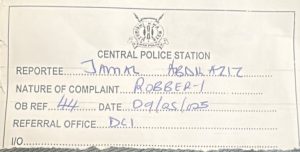 CENTRAL POLICE STATION
REPORTEE....JAMAL ABDILAZIZ
NATURE OF COMPLAINT...ROBBER-1
OB REF..44...DATE..09/05/025
REFERRAL OFFICE...DCI
I/O